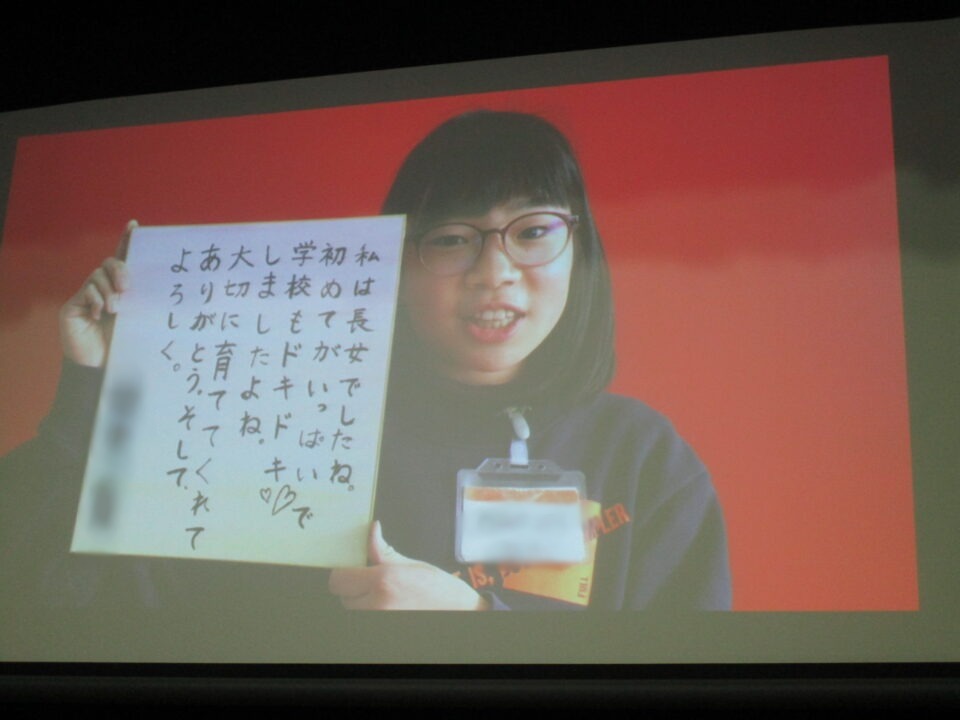 私は長女でしたね。
初めてがいっぱいで
学校もドキドキ♡♡
しましたよね。
大切に育ててくれて
ありがとう。そして、
よろしく。
IS,
FULL